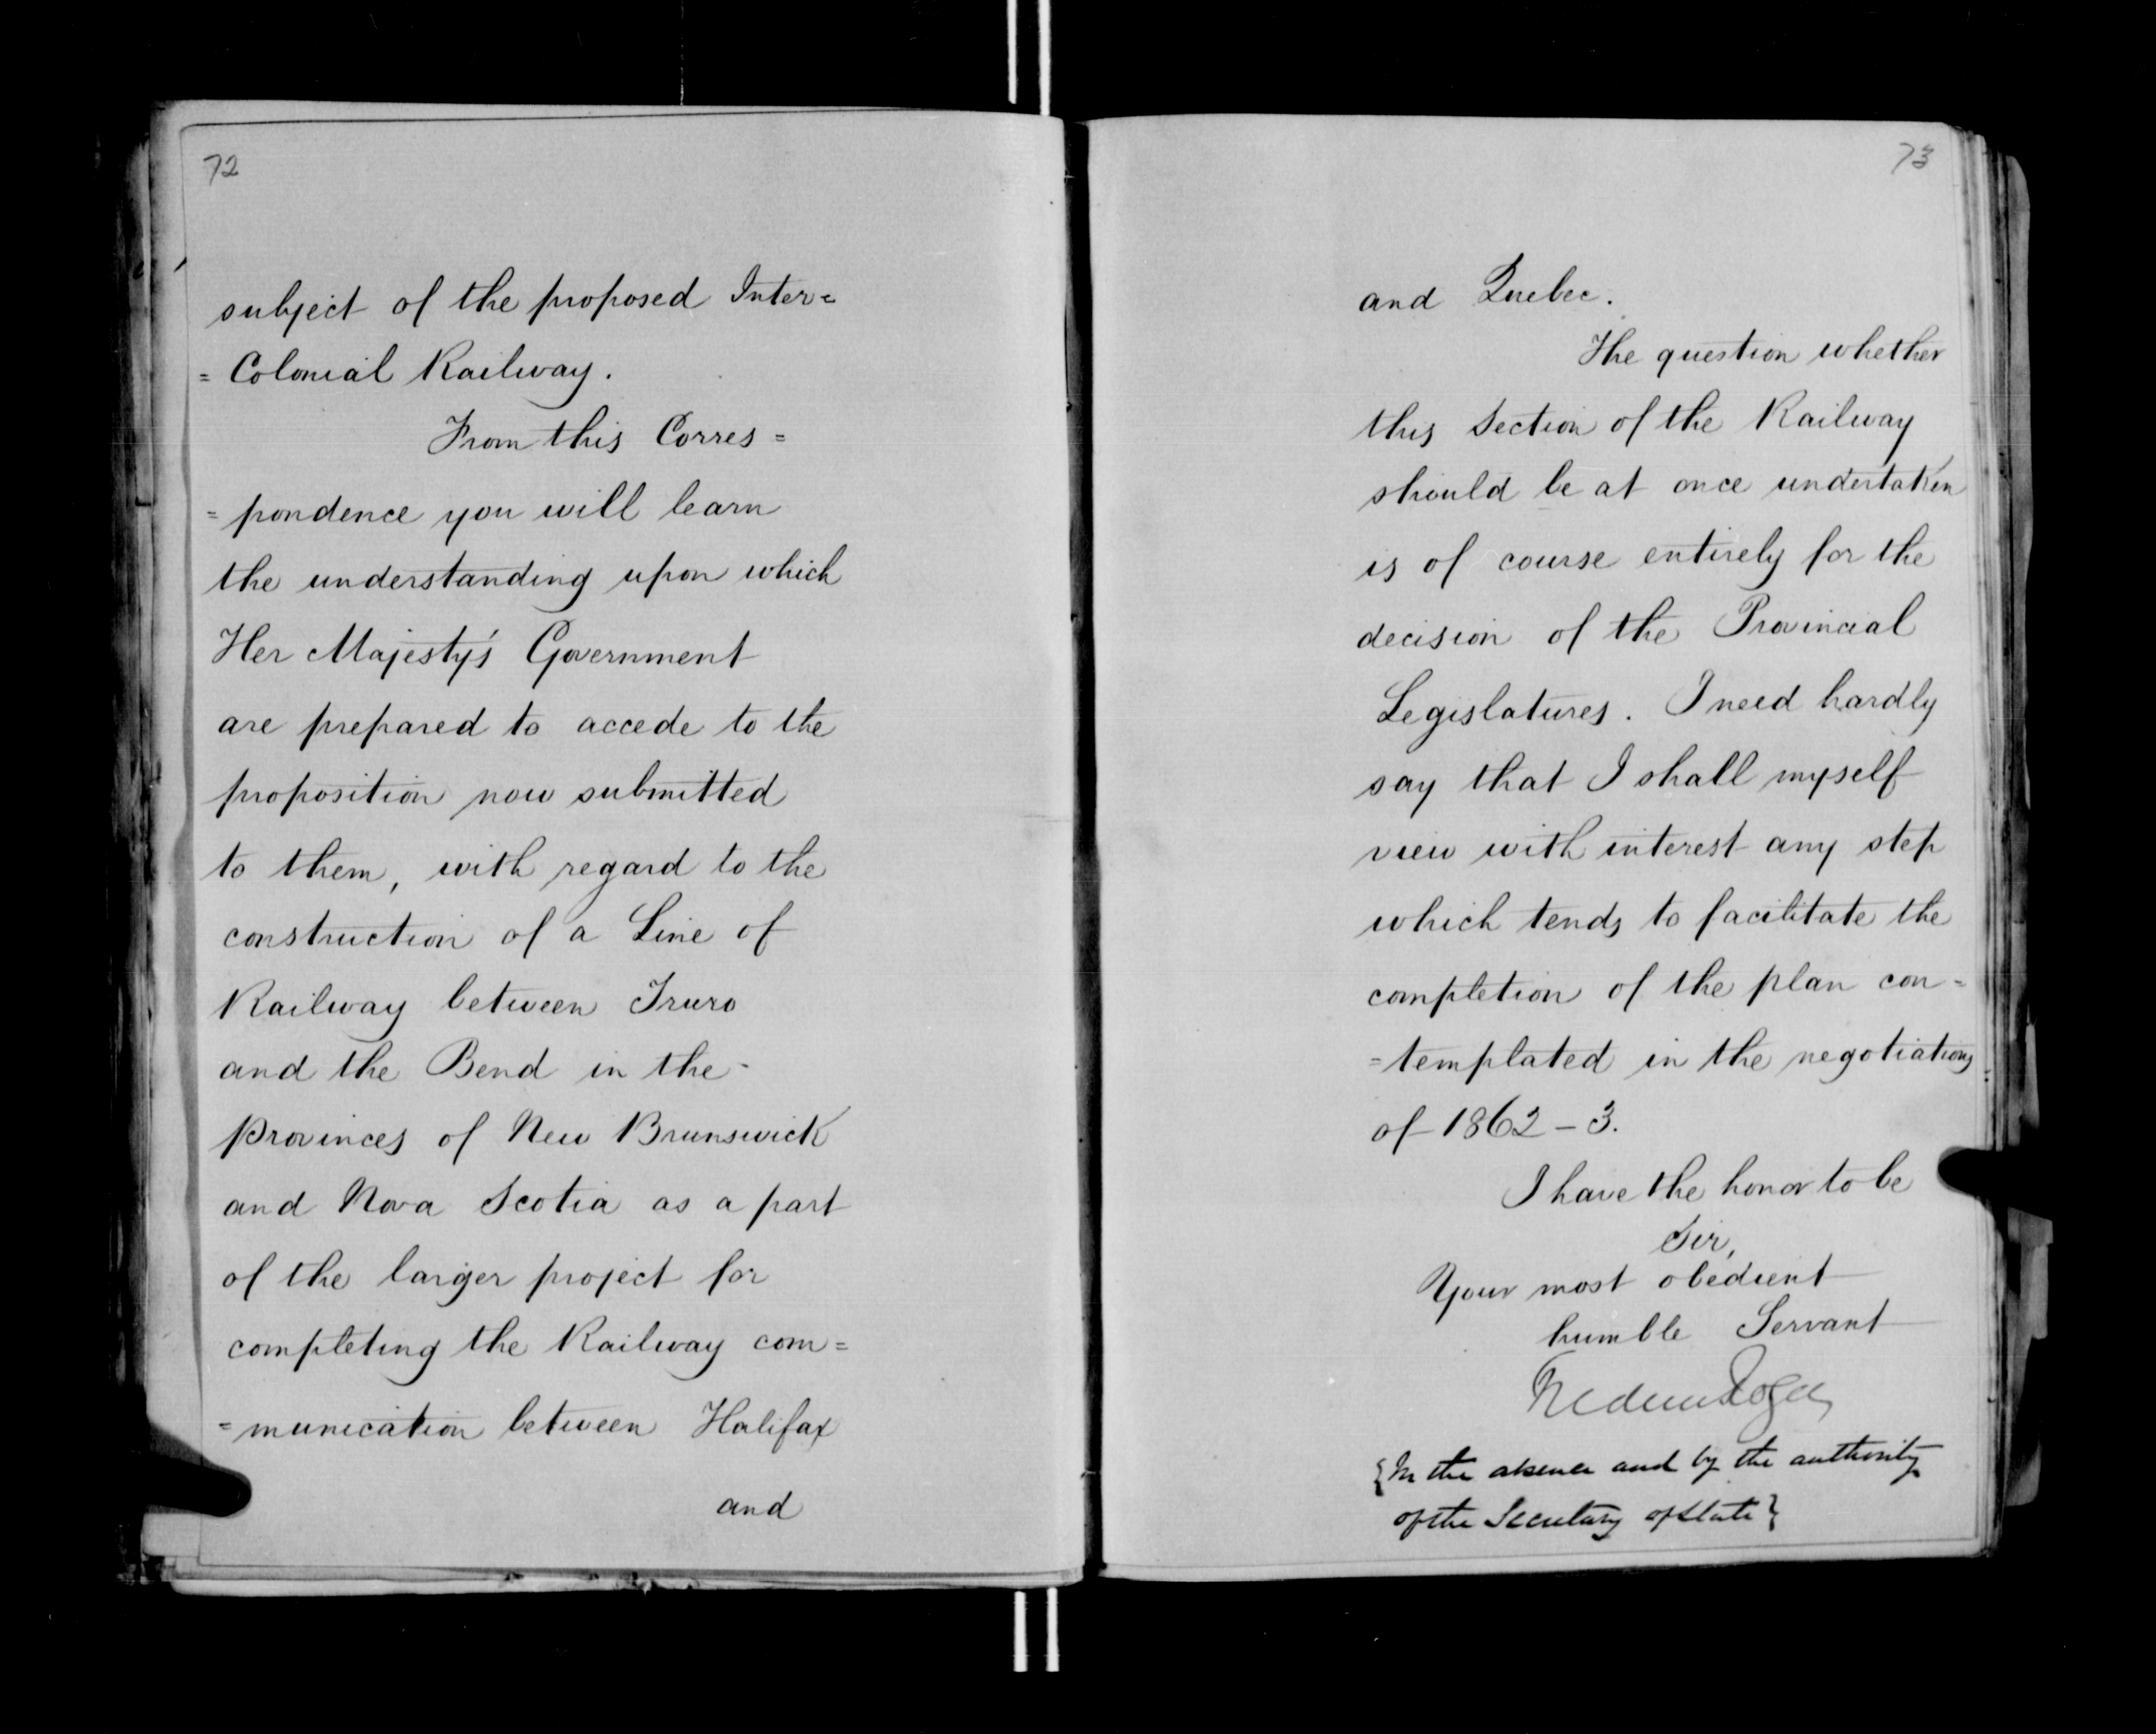 72
subject of the proposed Inter=
=Colonial Railway.
From this Corres=
=pondence you will learn
the understanding upon which
Her Majesty's Government
are prepared to accede to the
proposition now submitted
to them, with regard to the
construction of a Line of
Railway between Truro
and the Bend in the
Provinces of New Brunswick
and Nova Scotia as a part
of the larger project for
completing the Railway com=
=munication between Halifax
and
73
and Quebec.
The question whether
this Section of the Railway
should be at once undertaken
is of course entirely for the
decision of the Provincial
Legislatures. I need hardly
say that I shall myself
view with interest any step
which tends to facilitate the
completion of the plan con=
=templated in the negotiations
of 1862-3.
I have the honor to be
Sir,
Your most obedient
humble Servant
Frederic Rogers
{In the absence and by the authority
of the Secretary of State}